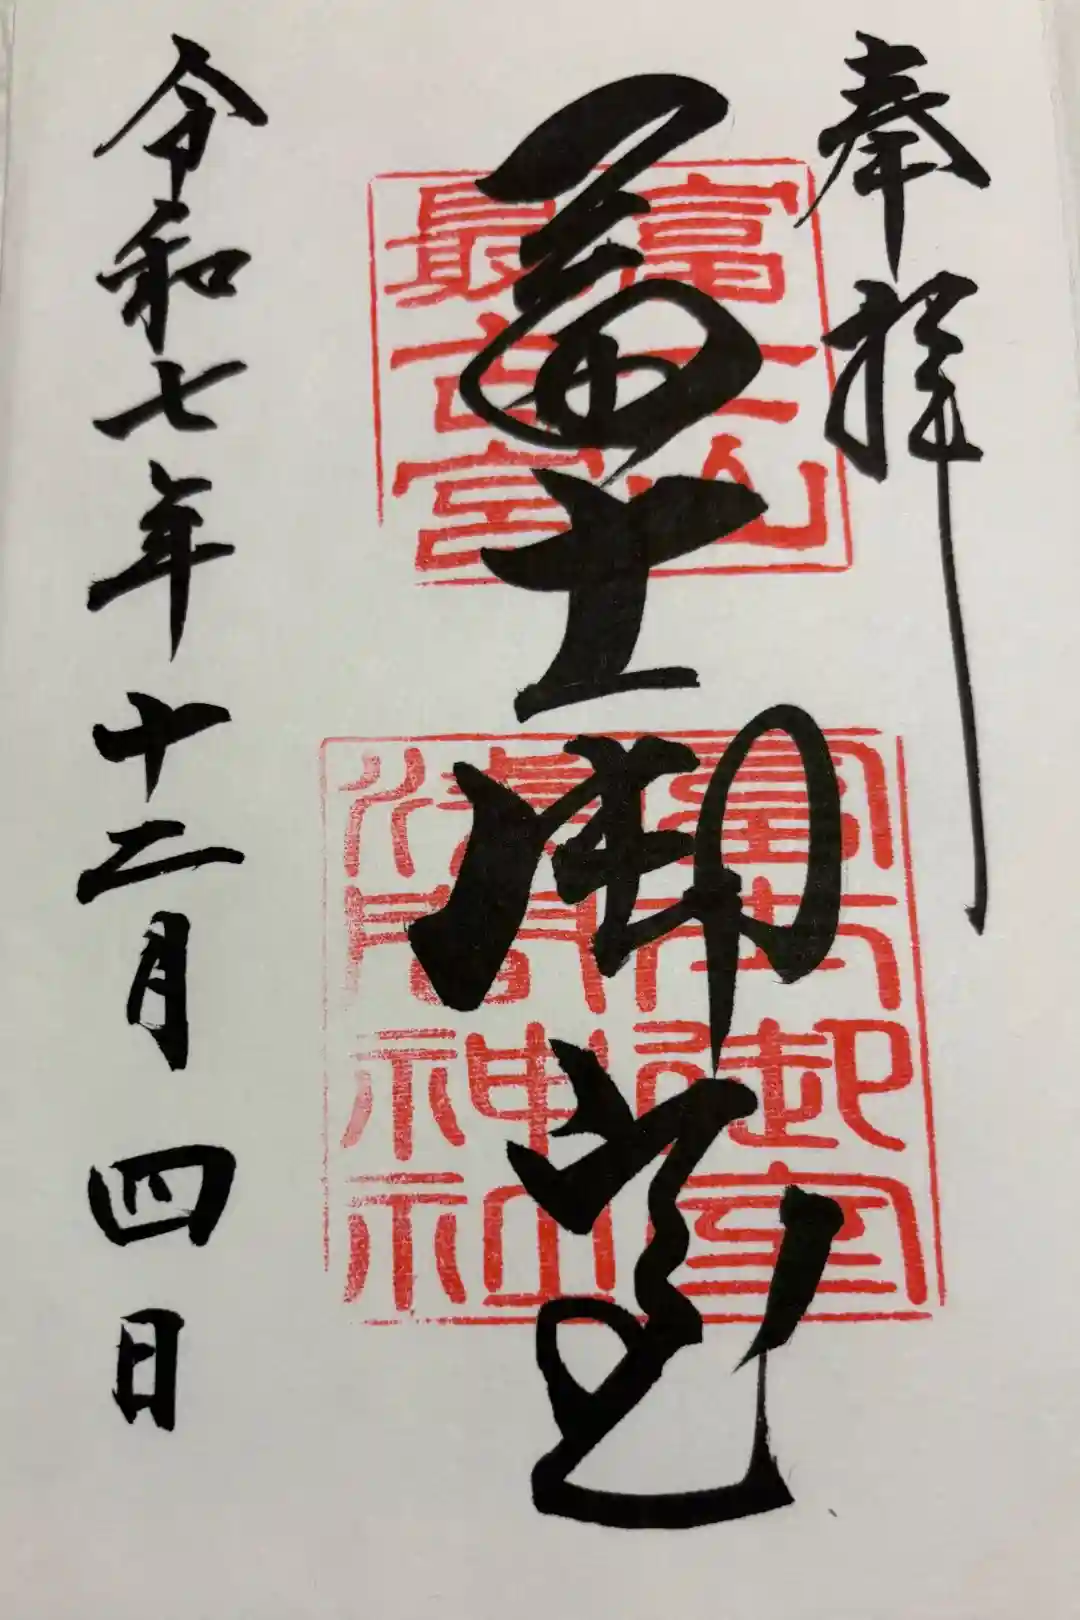 奉拝
富士山最古宮
冨士御室
冨士御室淺間神社
令和七年十二月四日